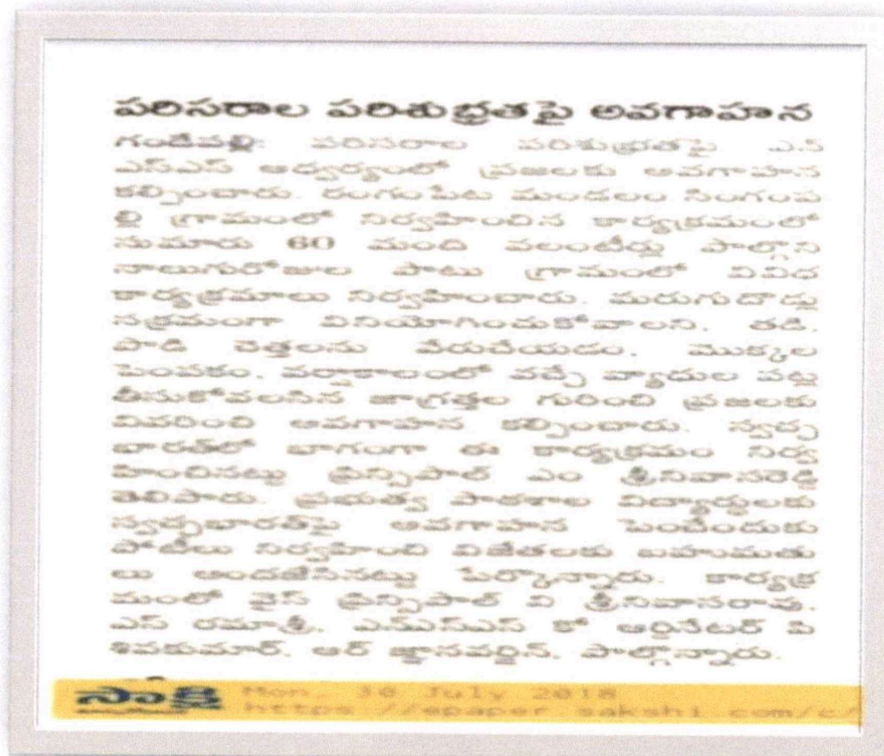 పరిసరాల పరిశుభ్రతపై అవగాహన
గండేపల్లి: పరిసరాల పరిశుభ్రతపై ఎన్
ఎస్ఎస్ ఆధ్వర్యంలో ప్రజలకు అవగాహన
కల్పించారు. రంగంపేట మండలం సింగంప
ల్లి గ్రామంలో నిర్వహించిన కార్యక్రమంలో
సుమారు 60 మంది వలంటీర్లు పాల్గొని
నాలుగురోజుల పాటు గ్రామంలో వివిధ
కార్యక్రమాలు నిర్వహించారు. మరుగుదొడ్లు
సక్రమంగా వినియోగించుకోవాలని, తడి,
పొడి చెత్తలను వేరుచేయడం, మొక్కల
పెంపకం, వర్షాకాలంలో వచ్చే వ్యాధుల పట్ల
తీసుకోవలసిన జాగ్రత్తల గురించి ప్రజలకు
వివరించి అవగాహన కల్పించారు. స్వచ్ఛ
భారత్‌లో భాగంగా ఈ కార్యక్రమం నిర్వ
హించినట్టు ప్రిన్సిపాల్ ఎం శ్రీనివాసరెడ్డి
తెలిపారు. ప్రభుత్వ పాఠశాల విద్యార్థులకు
స్వచ్ఛభారత్‌పై అవగాహన పెంచేందుకు
పోటీలు నిర్వహించి విజేతలకు బహుమతు
లు అందజేసినట్టు పేర్కొన్నారు. కార్యక్ర
మంలో వైస్ ప్రిన్సిపాల్ వి శ్రీనివాసరావు,
ఎస్ రమాశ్రీ, కో ఆర్డినేటర్ పి
శివకుమార్, ఆర్ పాల్గొన్నారు.
సాక్షి Mon, 30 July 2018
https://epaper.sakshi.com/c/